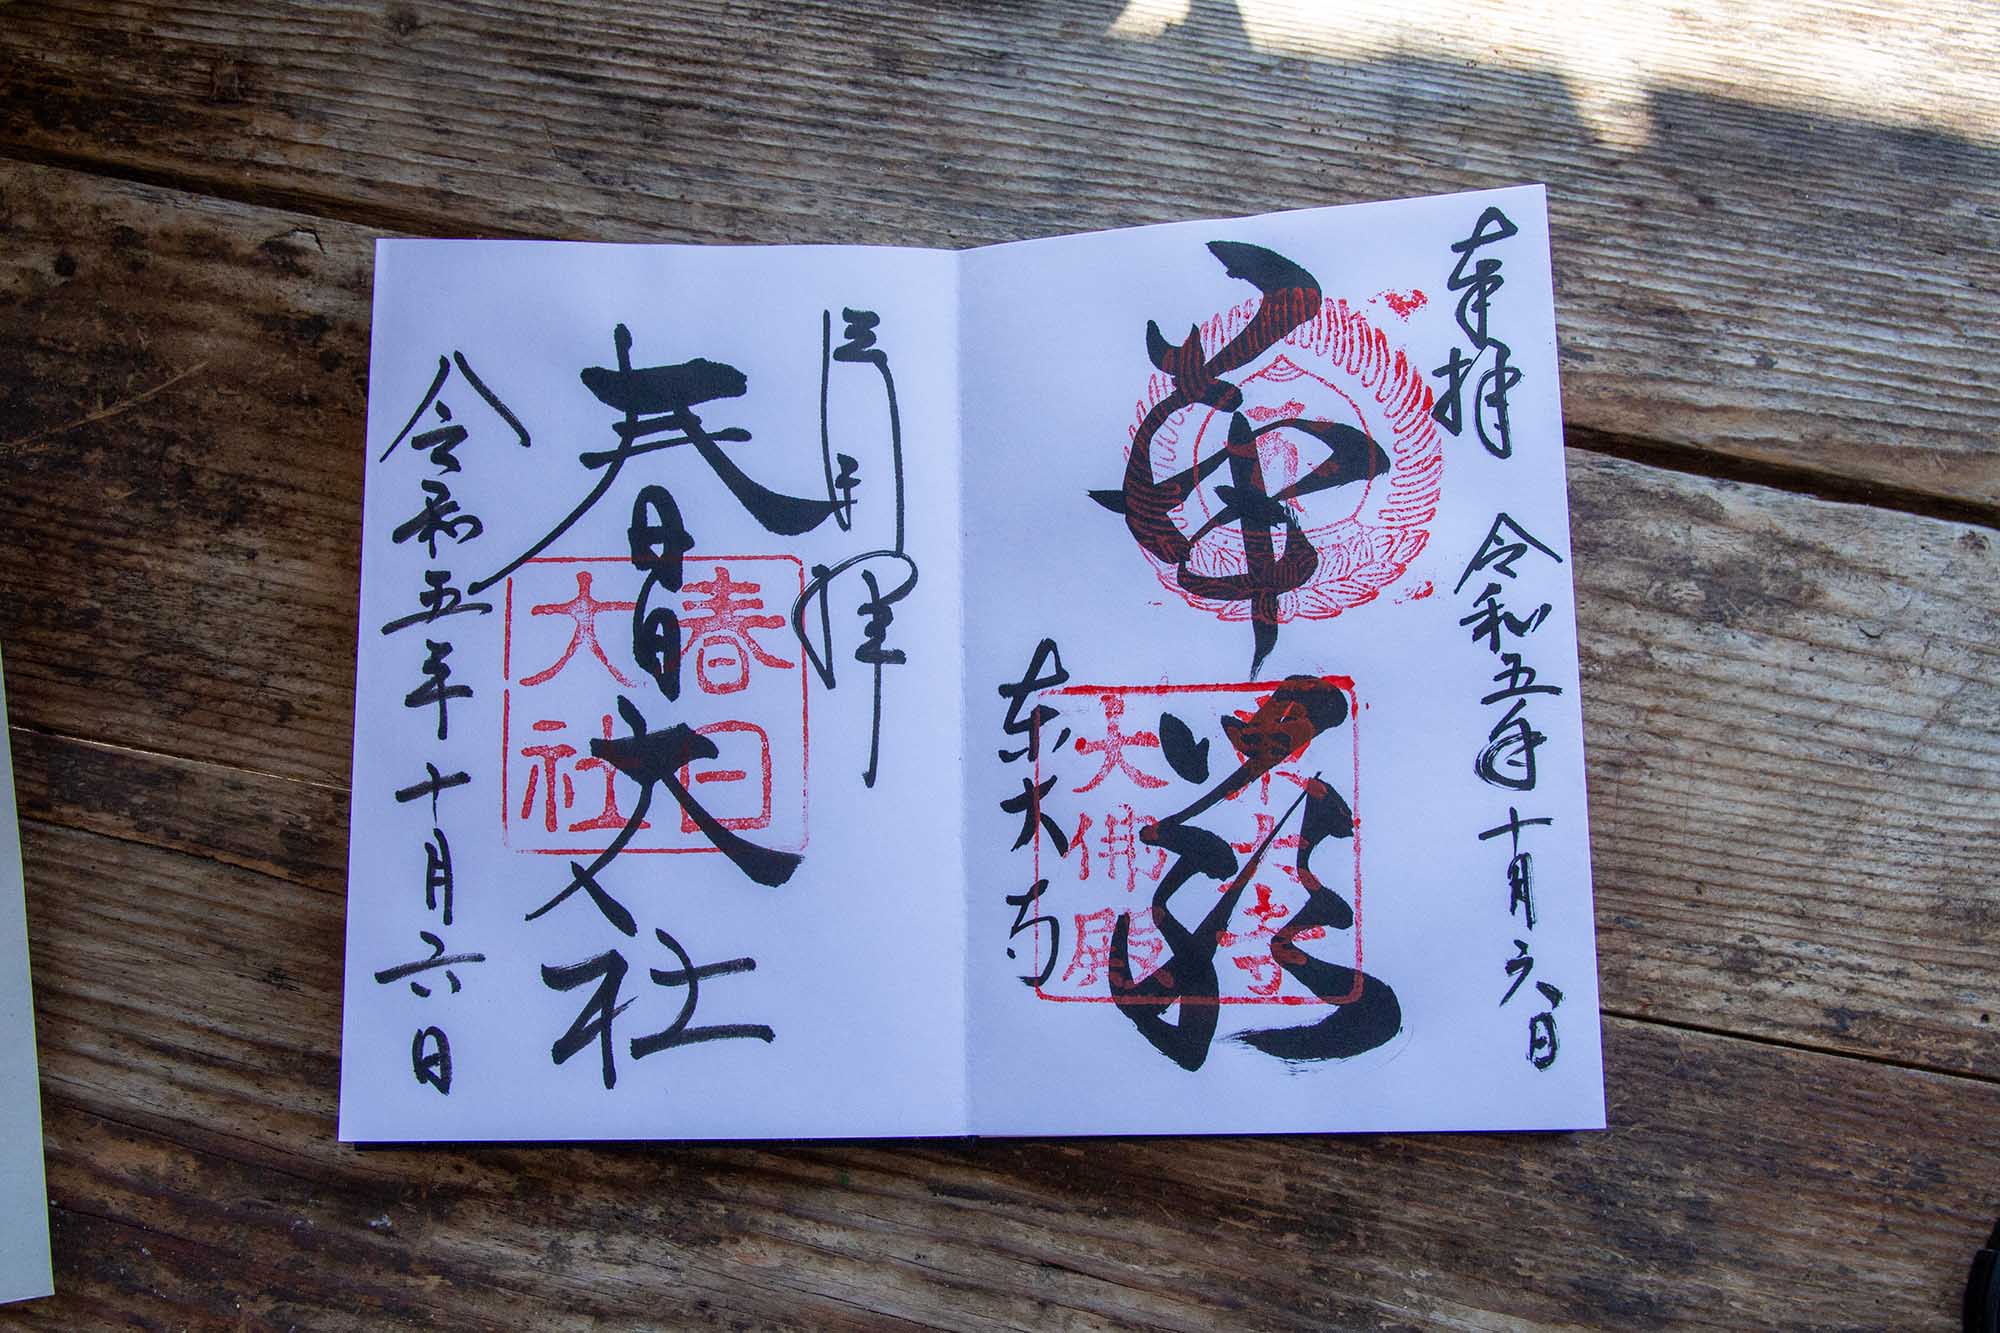 奉拝 令和五年十月六日
華嚴
東大寺
大佛殿
東大寺
春日大社
春日
大社
令和五年十月六日